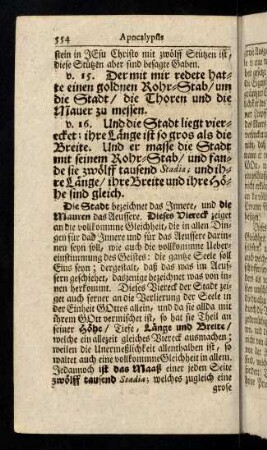 554 Apocalypsis
stein in JEsu Christo mit zwölff Stützen ist,
diese Stützen aber sind besagte Gaben.
v. 15. Der mit mir redete hat-
te einen goldnen Rohr-Stab/ um
die Stadt/ die Thoren und die
Mauer zu messen.
v. 16. Und die Stadt liegt vier-
ecket: ihre Länge ist so gros als die
Breite. Und er masse die Stadt
mit seinem Rohr-Stab/ und fan-
de sie zwölff tausend Stadia; und ih-
re Länge/ ihre Breite und ihre Hö-
he sind gleich.
Die Stadt bezeichnet das Innere, und die
Mauren das Aeussere. Dieses Viereck zeiget
an die vollkomne Gleichheit, die in allen Din-
gen für das Innere und für das Aeussere darin-
nen seyn soll, wie auch die vollkomne Ueber-
einstimmung des Geistes: die gantze Seele soll
Eins seyn; dergestalt, daß das was im Aeus-
sern geschiehet, dasjenige bezeichnet was von in-
nen herkommt. Dieses Viereck der Stadt zei-
get auch ferner an die Verlierung der Seele in
der Einheit GOttes allein, und da sie allda mit
ihrem GOtt vermischet ist, so hat sie Theil an
seiner Höhe/ Tiefe, Länge und Breite/
welche ein allezeit gleiches Viereck ausmachen;
weilen die Unermeßlichkeit allenthalben ist, so
waltet auch eine vollkomne Gleichheit in allem.
Jedannoch ist das Maaß einer jeden Seite
zwölff tausend Stadia; welches zugleich eine
grose